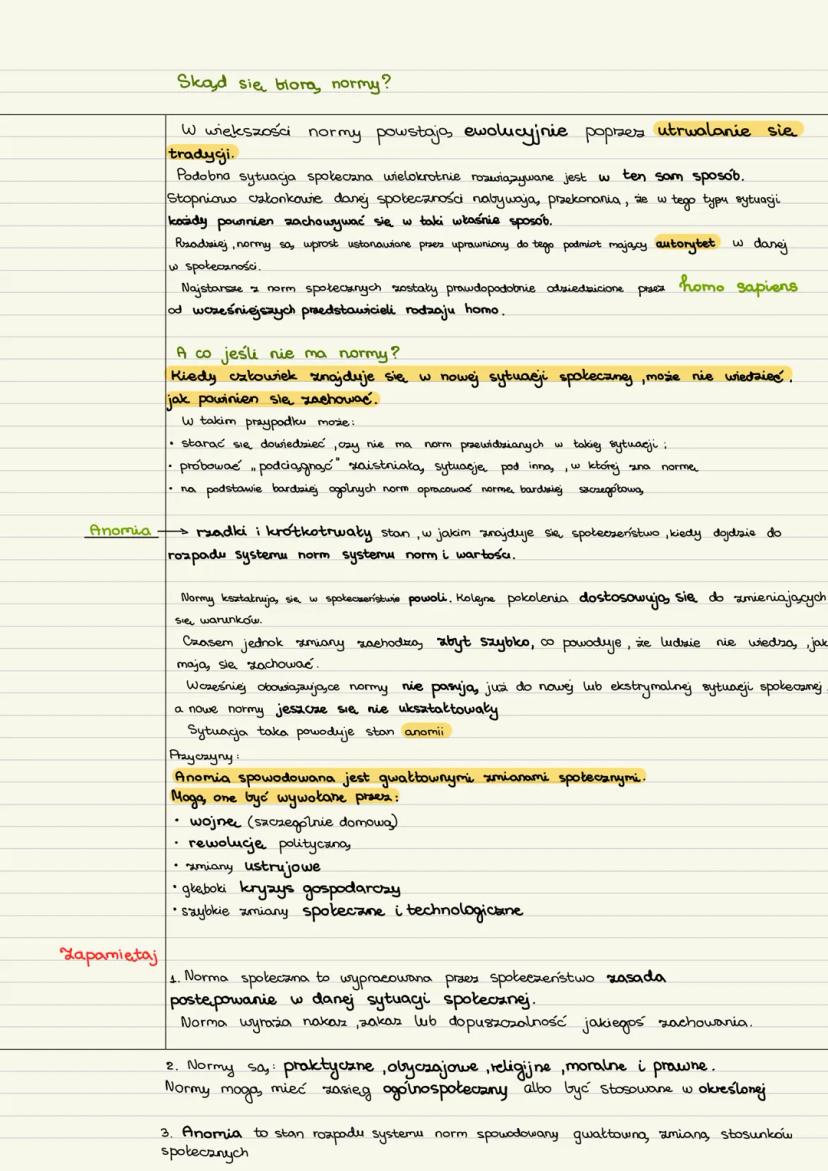 Skąd się biorą normy?
W większości normy powstają ewolucyjnie poprzez utrwalanie się
tradycji.
Podobna sytuacja społeczna wielokrotnie rozwiązywane jest w ten sam sposób.
Stopniowo członkowie danej społeczności nabywają przekonania, że w tego typu sytuacji
każdy powinien zachowywać się w taki właśnie sposób.
Rzadziej, normy są wprost ustanawiane przez uprawniony do tego podmiot mający autorytet w danej
w społeczności.
Najstarsze z norm społecznych zostały prawdopodobnie odziedziczone przez homo sapiens
od wcześniejszych przedstawicieli rodzaju homo.
A co jeśli nie ma normy?
Kiedy człowiek znajduje się w nowej sytuacji społecznej, może nie wiedzieć,
jak powinien się zachować.
W takim przypadku może:
• starać się dowiedzieć, czy nie ma norm przewidzianych w takiej sytuacji;
• próbować „podciągnąć" zaistniałą sytuację pod inną, w której zna normę
• na podstawie bardziej ogólnych norm opracować normę bardziej szczegółową
Anomia → rzadki i krótkotrwały stan, w jakim znajduje się społeczeństwo, kiedy dojdzie do
rozpadu systemu norm systemu norm i wartości.
Normy kształtują się w społeczeństwie powoli. Kolejne pokolenia dostosowują się do zmieniających
się warunków.
Czasem jednak zmiany zachodzą zbyt szybko, co powoduje, że ludzie nie wiedzą, jak
mają się zachować.
Wcześniej obowiązujące normy nie pasują już do nowej lub ekstrymalnej sytuacji społecznej
a nowe normy jeszcze się nie ukształtowały
Sytuacja taka powoduje stan anomii
Przyczyny:
Anomia spowodowana jest gwałtownymi zmianami społecznymi.
Mogą one być wywołane przez:
• wojnę (szczególnie domową)
• rewolucję polityczną
• zmiany ustrojowe
• głęboki kryzys gospodarczy
• szybkie zmiany społeczne i technologiczne
Zapamiętaj
1. Norma społeczna to wypracowana przez społeczeństwo zasada
postępowanie w danej sytuacji społecznej.
Norma wyraża nakaz, zakaz lub dopuszczalność jakiegoś zachowania.
2. Normy są: praktyczne, obyczajowe, religijne, moralne i prawne.
Normy mogą mieć zasięg ogólnospołeczny albo być stosowane w określonej
3. Anomia to stan rozpadu systemu norm spowodowany gwałtowną zmianą stosunków
społecznych